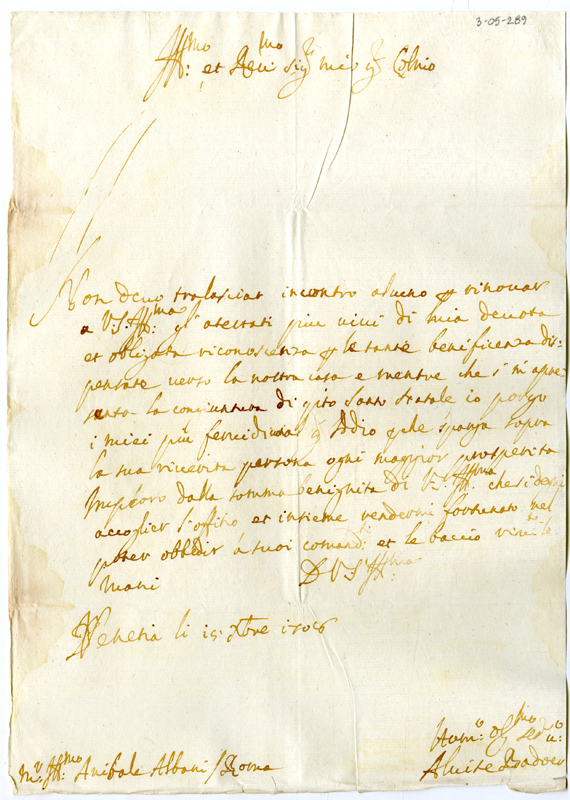 3-05-289
Ill:mo et Rev:mo Sig.r mio P'ron Col:mo
Non devo tralasciar incontro alcuno p rinovar
a V.S. Ill:ma gl'atestati piu vivi di mia devota
et obligata riconoscienza p le tante beneficenze dis=
pensate verso la nostra casa e mentre che s'm'apre=
senta la congiuntura di q'sto santo Natale io porgo
i miei più fervidi p Iddio p che sparga sopra
la sua riverita persona ogni maggior prosperità
Imploro dalla somma benignità di V.S. Ill:ma che si degni
accoglier l'offitio et insieme rendermi fortunato nel
poter obbedir a suoi comandi et le baccio rive:te le
Mani
D V S Ill:ma
Venetia li 15: Xbre 1706
M.r Ill:mo Anibale Albani / Roma
Hum:o Oblig:mo Ser:u
Alvise Badoer